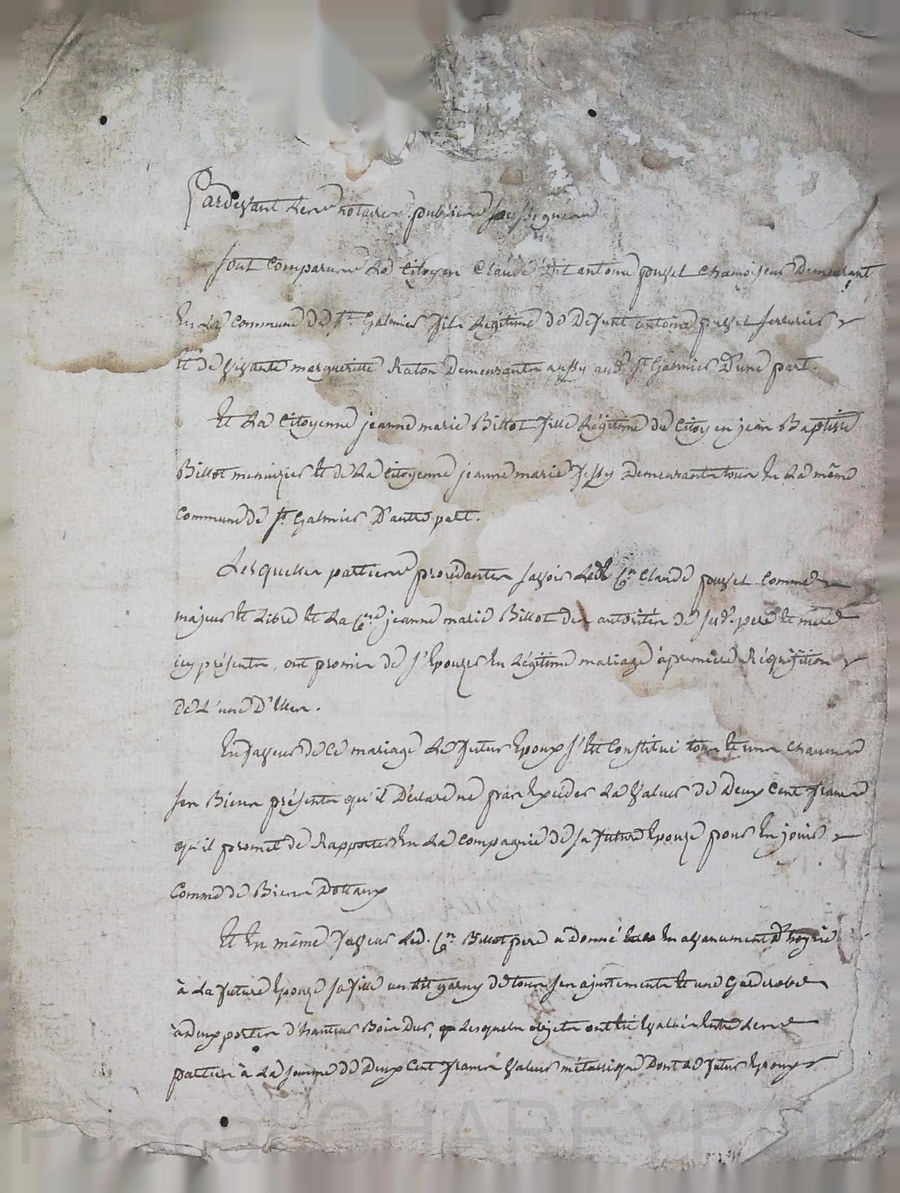 Pardevant Les notaires publics soussignés
sont comparus Le Citoyen Claude dit antoine pouzet chamoiseur Demeurant
En La Commune de St. Galmier fils Légitime de Defunt antoine pouzet serrurier
Et de vivante marguerite Raton Demeurante aussy aud. St Galmier D'une part.
Et La Citoyenne jeanne marie Billot fille Légitime de Citoyen jean Baptiste
Billot menuizier Et de La Citoyenne jeanne marie Demeurants tous En La même
Commune de St. Galmier D'autre part.
Lesquelles parties procédantes savoir Led. Cen Claude pouzet Comme
majeur Et Libre Et La Cne jeanne marie Billot des autorités de sesd. pere Et mere
icy présents, ont promis de s'Epouzer En Légitime mariage à première Réquisition
De L'une D'Elles.
En faveur de Ce mariage Le futur Epoux s'Est Constitué tous Et uns chacuns
ses Biens présents qu'il Déclare ne pas Excéder La valeur de Deux Cent francs
qu'il promet de Rapporter En La Compagnie de sa future Epouze pour En jouir
Comme de Biens Dottaux
Et En même faveur Led. Cen Billot pere a Donné En avancement D'hoyrie
à La future Epouze sa fille un Lit garny de tous ses ajustements Et une Garderobe
à deux portes d'hauteur Bois Dur, Lesquels objets ont été Evalués Entre Les
parties à La somme de Deux Cent francs valeur métallique Dont Le futur Epoux
Pascal CHAREYRON